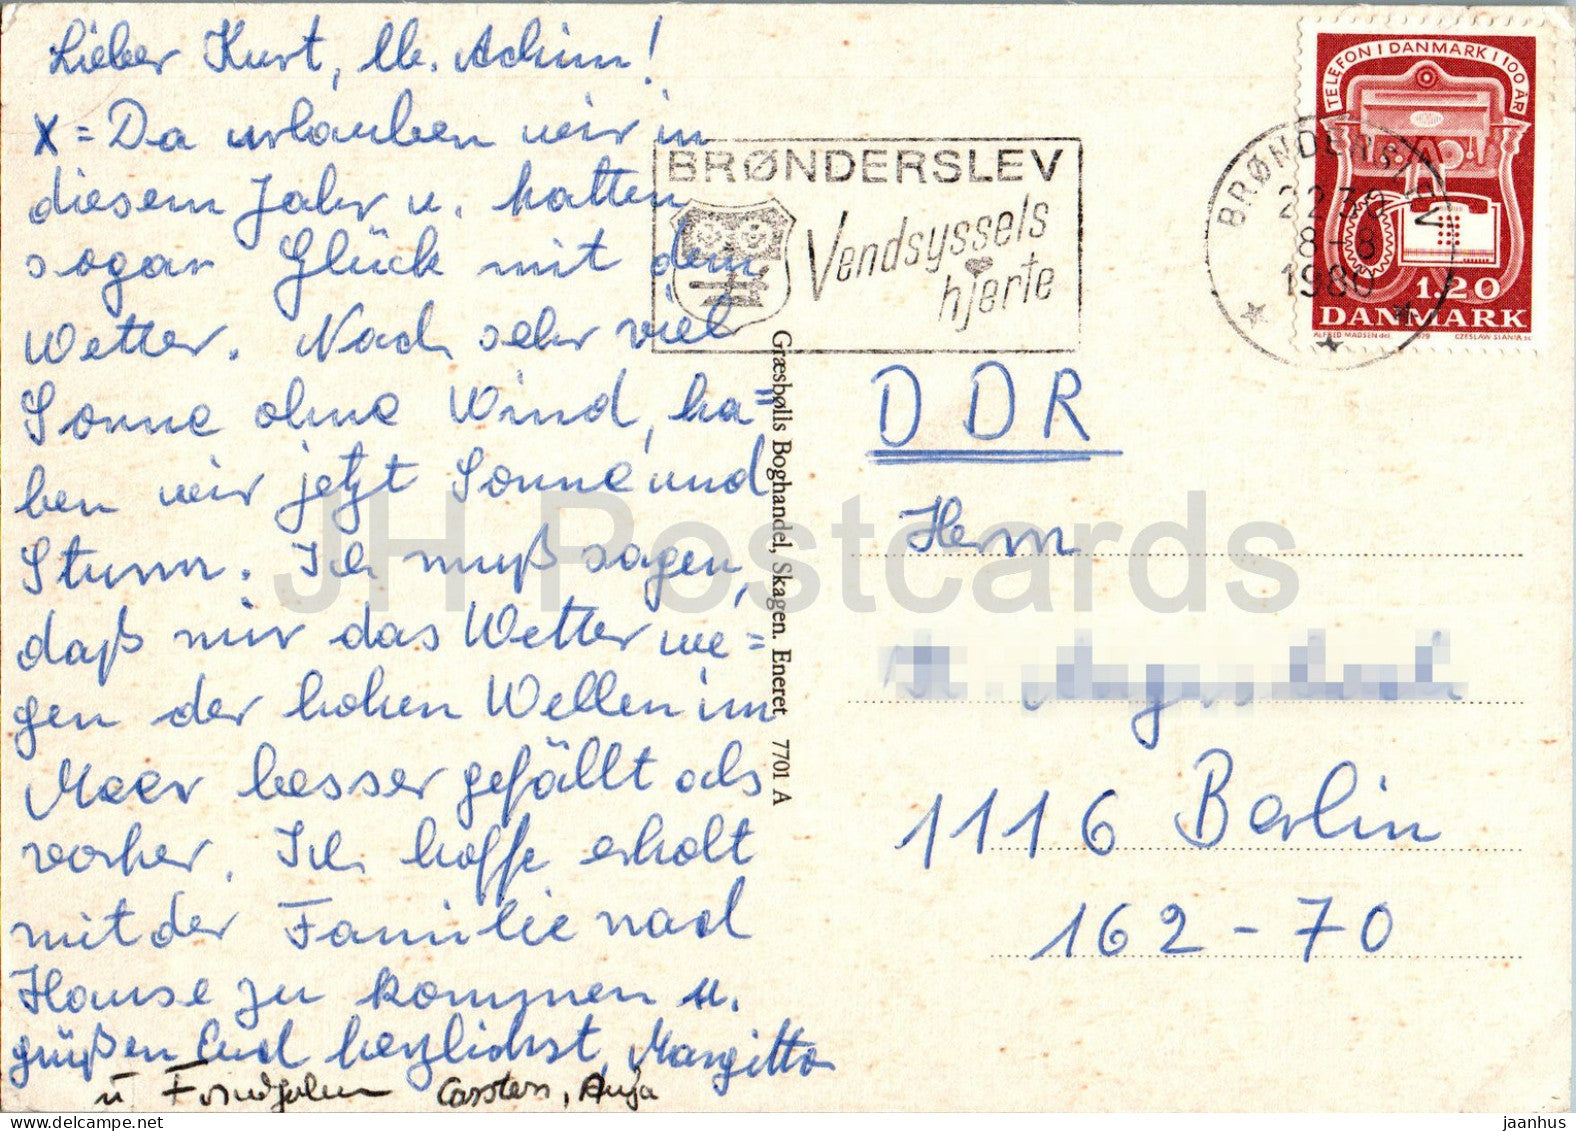 Lieber Kurt, lb. Achim!
X = Da urlauben wir in
diesem Jahr u. hatten
sogar Glück mit dem
Wetter. Nach sehr viel
Sonne ohne Wind, ha=
ben wir jetzt Sonne und
Sturm. Ich muß sagen,
daß mir das Wetter we=
gen der hohen Wellen im
Meer besser gefällt als
vorher. Ich hoffe erholt
mit der Familie nach
Hause zu kommen u.
grüßen Euch herzlichst, Margitta
u Carsten, Anja
BRØNDERSLEV
Vendsyssels
hjerte
BRØNDERSLEV
2230
8-8
1980
TELEFON I DANMARK I 100 ÅR
1.20
DANMARK
ALFRED MADSEN del. 1979 CZESLAW SLANIA sc.
Græsbølls Boghandel, Skagen. Eneret 7701 A
DDR
Herrn
1116 Berlin
162-70
JH Postcards
jaanhus
www.delcampe.net